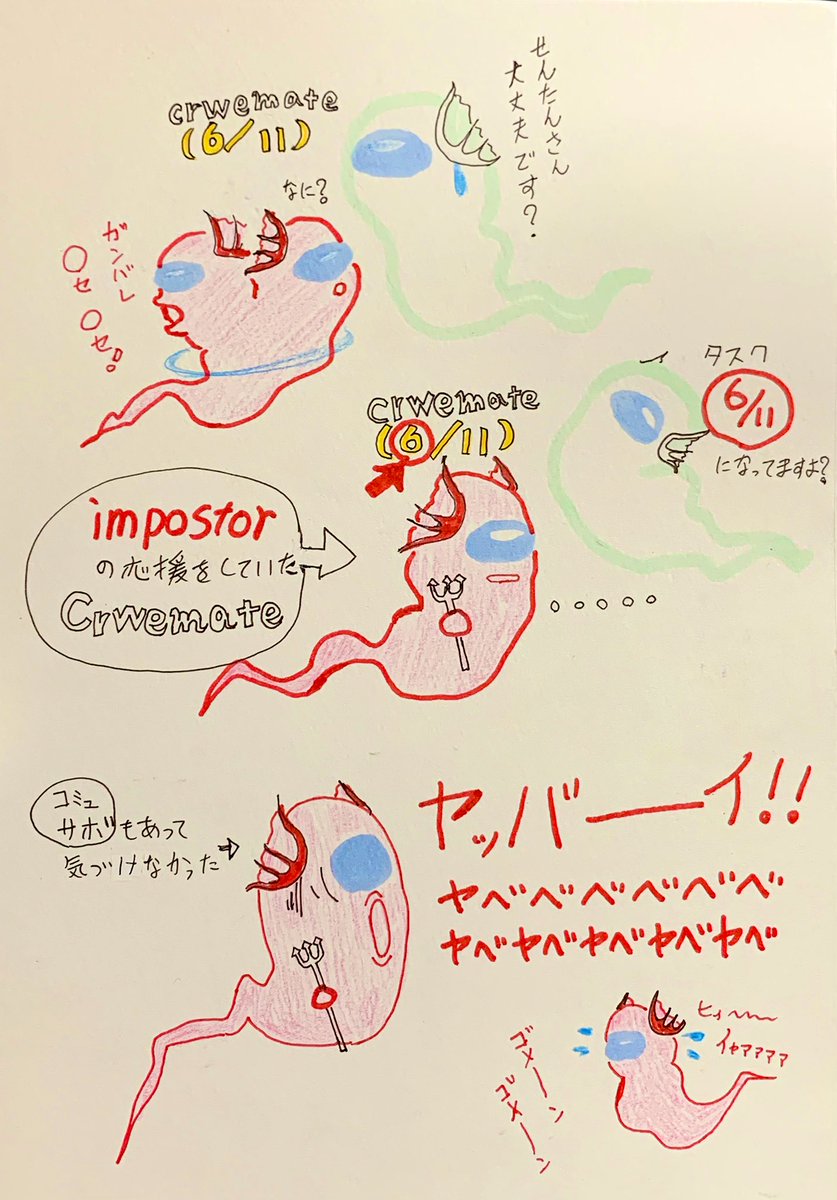 せんたんさん
大丈夫です?
crwemate
(6/11)
なに?
ガンバレ
○セ ○セ!!
タスク
6/11
になってますよ?
crwemate
(6/11)
impostor
の応援をしていた
Crwemate
コミュ
サボもあって
気づけなかった
ヤッバーーイ!!
ヤベベベベベベ
ヤベヤベヤベヤベヤベ
イヤアアアア
ゴメーン
ゴメーン